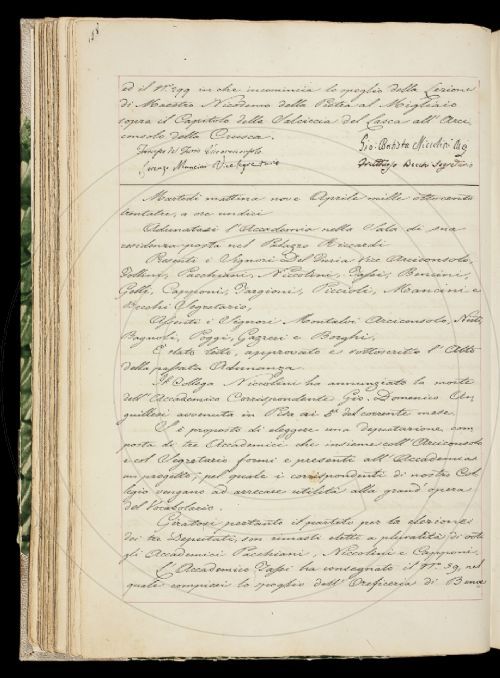 ed il N.° 299 in che incomincia lo spoglio della Lezione
di Maestro Nicodemo della Pietra al Migliaio
sopra il Capitolo della Salsiccia del Lasca all' Arci
consolo della Crusca.
Giuseppe del Furia Vicearciconsolo
Gio. Batista Niccolini
Lorenzo Mancini Vice Segretario
Fruttuoso Becchi Segretario
Martedì mattina nove Aprile mille ottocento
trentatre, a ore undici
Adunatasi l'Accademia nella Sala di sua
residenza posta nel Palazzo Riccardi
Presenti i Signori Del Furia Vice Arciconsolo,
Follini, Pacchiani, Niccolini, Tassi, Bencini,
Gelli, Capponi, Targioni, Piccioli, Mancini e
Becchi Segretario,
Assenti i Signori Montalvi Arciconsolo, Nesti,
Bagnoli, Poggi, Gazzeri e Borghi,
È stato letto, approvato e sottoscritto l'Atto
della passata Adunanza.
Il Collega Niccolini ha annunziato la morte
dell' Accademico Corrispondente Gio. Domenico An,
guillesi avvenuta in Pisa ai 5 del corrente mese.
Si è proposto di eleggere una deputazione, com
posta di tre Accademici che insieme coll' Arciconsolo
e col Segretario formi e presenti all' Accademia
un progetto, pel quale i corrispondenti di nostro Col
legio vengano ad arrecare utilità alla grand' opera
del Vocabolario.
Giratosi pertanto il partito per la elezione
dei tre Deputati, son rimasti eletti a pluralità di voti
gli Accademici Pacchiani, Niccolini e Capponi.
L'Accademico Tassi ha consegnato il N.° 39, nel
quale compiesi lo spoglio dell' Oreficeria di Benve